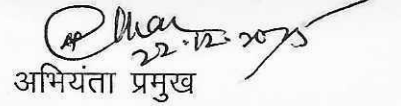 22.12.2025
अभियंता प्रमुख